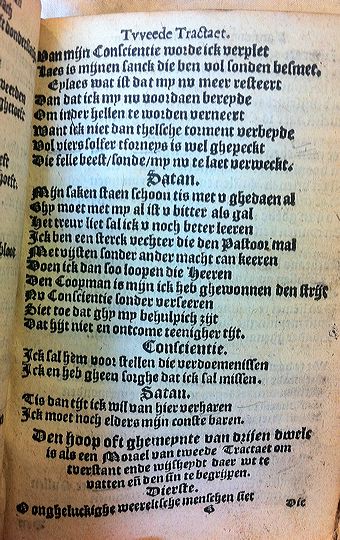 Tvveede Tractaet.
Van mijn Conscientie worde ick verplet
Laes is mijnen sanck die ben vol sonden besmet.
Eplaes wat ist dat my nv meer resteert
Dan dat ick my nv voordaen bereyde
Om inder hellen te worden verneert
Want sick niet dan thelsche torment verbeyde
Vol viers solfer tforneys is wel ghepeckt
Die felle beest/sonde/my nv te laet verweckt.
Satan.
Mijn saken staen schoon tis met v ghedaen al
Ghy moet met my al ist v bitter als gal
Het treur liet sal ick v noch beter leeren
Ick ben een sterck vechter die den Pastoor mal
Met vijsten sonder ander macht can keeren
Doen ick dan soo loopen die Heeren
Den Coopman is mijn ick heb ghewonnen den strijt
Nv Conscientie sonder verseeren
Siet toe dat ghy my behulpich zijt
Dat hijt niet en ontcome teenigher tijt.
Conscientie.
Ick sal hem voor stellen die verdoemenissen
Ick en heb gheen sorghe dat ick sal missen.
Satan.
Tis dan tijt ick wil van hier verharen
Ick moet noch elders mijn conste baren.
Den hoop oft ghemeynte van drijen dwels
is als een Morael van tweede Tractaet om
tverstant ende wijsheydt daer wt te
vatten eñ den sin te begrijpen.
Dierste.
O ongheluckighe weereltsche menschen siet
Die